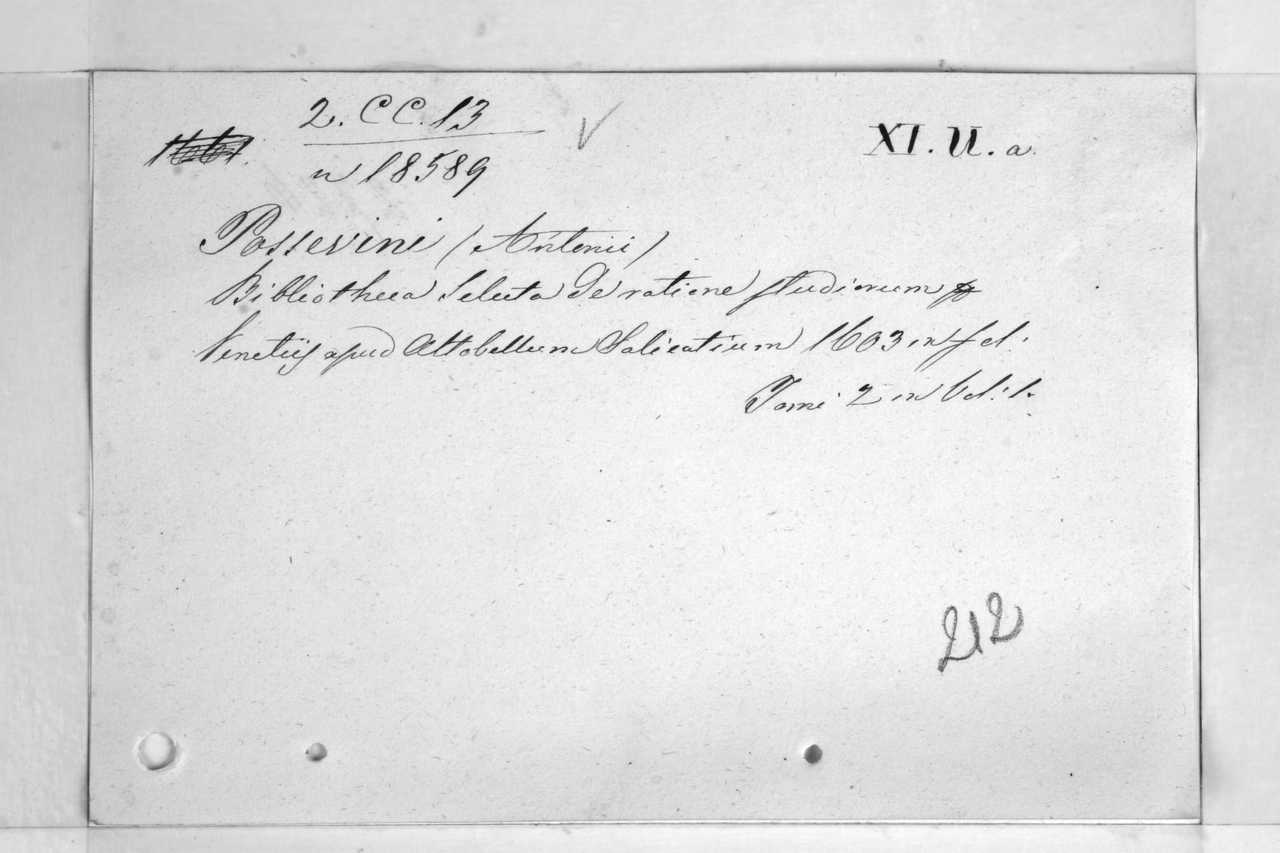 2. CC. 13
XI. U. a.
n 18589
Possevini (Antonii)
Bibliotheca Selecta De ratione studiorum
Venetijs apud Altobellum Salicatium 1603 in fol.
Tomi 2 in Vol. 1.
212